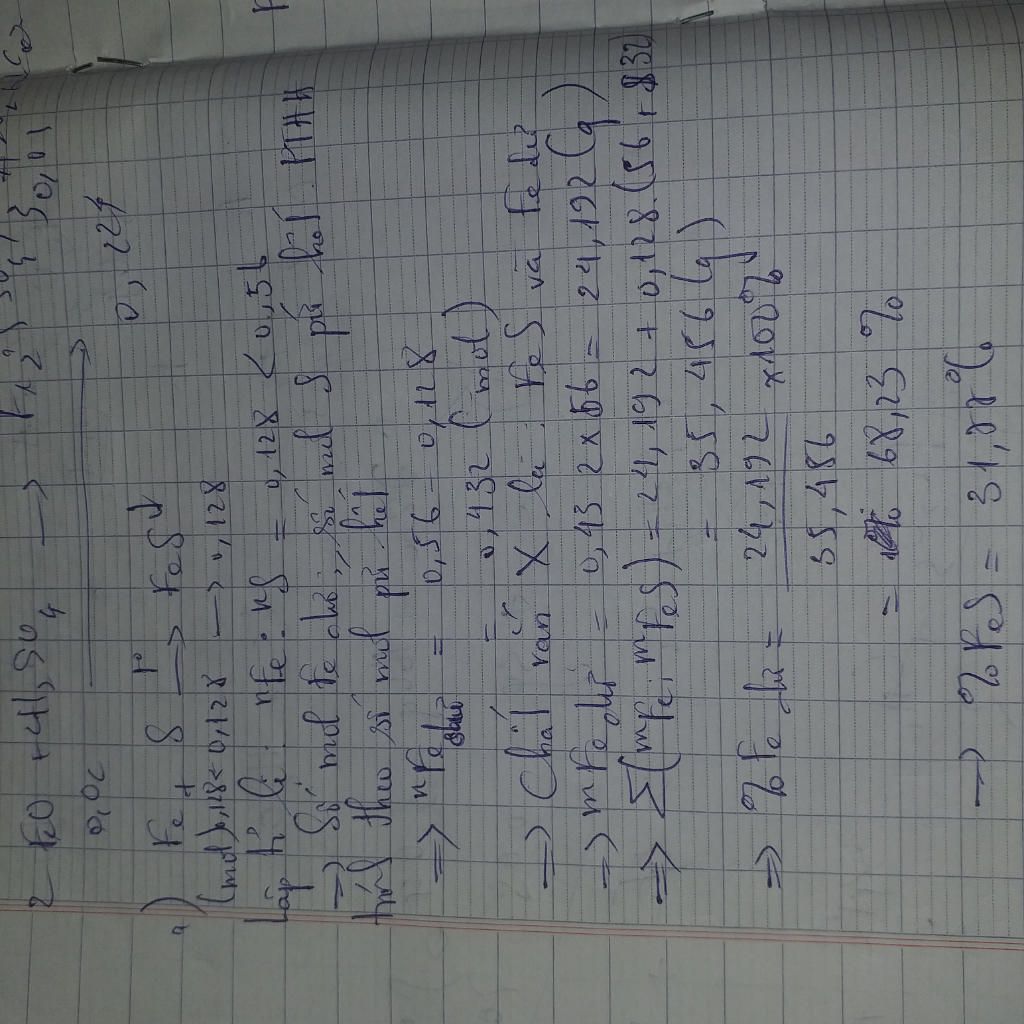 2 FeO + 4H₂SO₄ →
0,224
a) Fe + S →(t°) FeS↓
(mol) 0,128 < 0,128 → 0,128
Lập tỉ lệ: nFe : nS = 0,128 < 0,56
⇒ Số mol Fe dư, số mol S pứ hết. PTHH
tính theo số mol pứ hết
⇒ nFe dư = 0,56 - 0,128
= 0,432 (mol)
→ Chất rắn X là: FeS và Fe dư
⇒ mFe dư = 0,432 x 56 = 24,192 (g)
⇒ Σ(mFe; mFeS) = 24,192 + 0,128.(56 + 32)
= 35,456 (g)
⇒ %Fe dư = 24,192 / 35,486 x 100%
= 68,23 %
→ %FeS = 31,77%